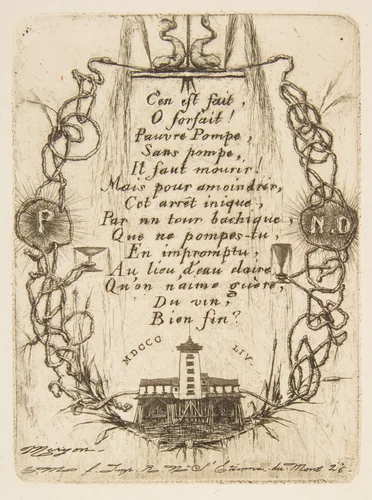 C'en est fait,
O forfait!
Pauvre Pompe,
Sans pompe,
Il faut mourir!
Mais pour amoindrir,
Cet arrêt inique,
Par un tour bachique,
Que ne pompes-tu,
En impromptu,
Au lieu d'eau claire,
Qu'on n'aime guère,
Du vin,
Bien fin?
P
N.D
MDCCC LIV
Meryon
C M f. Imp. R. N. St. Etienne du Mont 26.